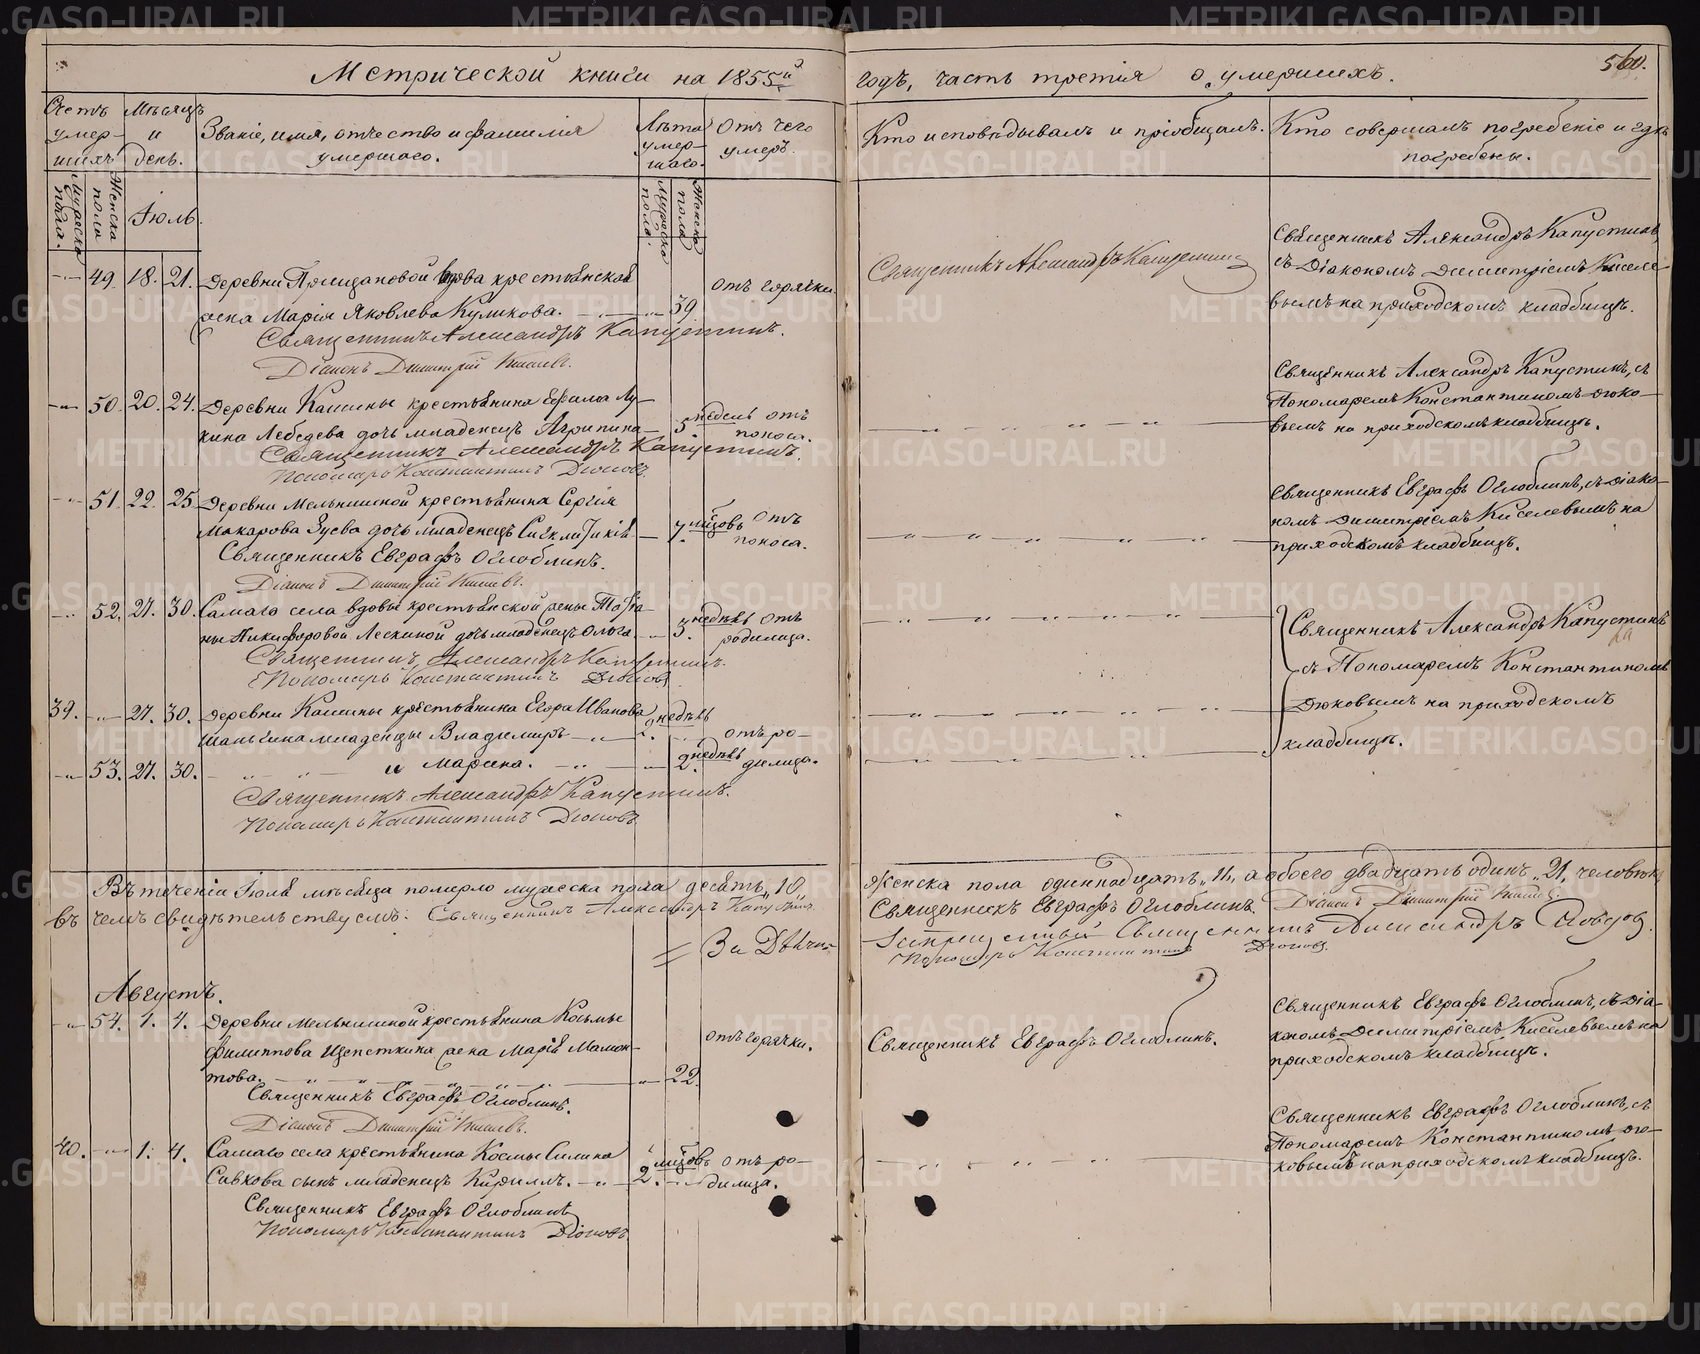 Метрической книги на 1855й годъ, часть третія о умершихъ.
560.
Счетъ умершихъ
Мѣсяцъ и день.
Званіе, имя, отчество и фамилія умершаго.
Лѣта умершаго.
Отъ чего умеръ.
Кто исповѣдывалъ и пріобщалъ.
Кто совершалъ погребеніе и гдѣ погребены.
Мужеска пола.
Женска пола
Іюль.
Мужеска пола.
Женска пола
49. 18. 21. Деревни вдова крестьянская
жена Марія Яковлева Куликова. 39. отъ горячки.
Священникъ Александръ Капустинъ.
Діаконъ Димитрій Киселевъ.
Священникъ Александръ Капустинъ
Священникъ Александръ Капустинъ,
съ Діакономъ Димитріемъ Киселе-
вымъ на приходскомъ кладбищѣ.
50. 20. 24. Деревни Кашины крестьянина Ефима Лу-
кина Лебедева дочь младенецъ Агрипина 5 недель отъ поноса.
Священникъ Александръ Капустинъ.
Пономарь Константинъ Дюковъ.
Священникъ Александръ Капустинъ, съ
Пономаремъ Константиномъ Дюко-
вымъ на приходскомъ кладбищѣ.
51. 22. 25. Деревни Мельнишной крестьянина Сергія
Макарова Зуева дочь младенецъ Сигклитикія 7. мѣсяцовъ отъ поноса.
Священникъ Евграфъ Оглоблинъ.
Діаконъ Димитрій Киселевъ.
Священникъ Евграфъ Оглоблинъ, съ Діако-
номъ Димитріемъ Киселевымъ на
приходскомъ кладбищѣ.
52. 27. 30. Самаго села вдовы крестьянской жены Татіа-
ны Никифоровой Лескиной дочь младенецъ Ольга. 3. недѣль отъ родилица.
Священникъ Александръ Капустинъ.
Пономарь Константинъ Дюковъ.
Священникъ Александръ Капустинъ
съ Пономаремъ Константиномъ
Дюковымъ на приходскомъ
кладбищѣ.
39. 27. 30. Деревни Кашины крестьянина Егора Иванова
младенцы Владимиръ 2. недѣль
отъ ро-
53. 27. 30. и Марина. 2. недѣль дилица.
Священникъ Александръ Капустинъ.
Пономарь Константинъ Дюковъ.
Въ теченіи Іюля мѣсяца померло мужеска пола десять, 10, женска пола одиннадцать, 11, а обоего двадцать одинъ, 21, человѣкъ,
въ чемъ свидѣтельствуемъ: Священникъ Александръ Капустинъ. Священникъ Евграфъ Оглоблинъ. Діаконъ Димитрій Киселевъ
За Священникъ Александръ
Пономарь Константинъ Дюковъ.
Августъ.
54. 1. 4. Деревни Мельнишной крестьянина Козьмы
Филиппова Щепеткина жена Марія Мамон-
това. 22. отъ горячки.
Священникъ Евграфъ Оглоблинъ.
Діаконъ Димитрій Киселевъ.
Священникъ Евграфъ Оглоблинъ.
Священникъ Евграфъ Оглоблинъ, съ Діа-
кономъ Димитріемъ Киселевымъ на
приходскомъ кладбищѣ.
40. 1. 4. Самаго села крестьянина Космы Силина
Савкова сынъ младенецъ Кириллъ. 2. мѣсяцовъ отъ ро-
дилица.
Священникъ Евграфъ Оглоблинъ
Пономарь Константинъ Дюковъ.
Священникъ Евграфъ Оглоблинъ, съ
Пономаремъ Константиномъ Дю-
ковымъ на приходскомъ кладбищѣ.
METRIKI.GASO-URAL.RU